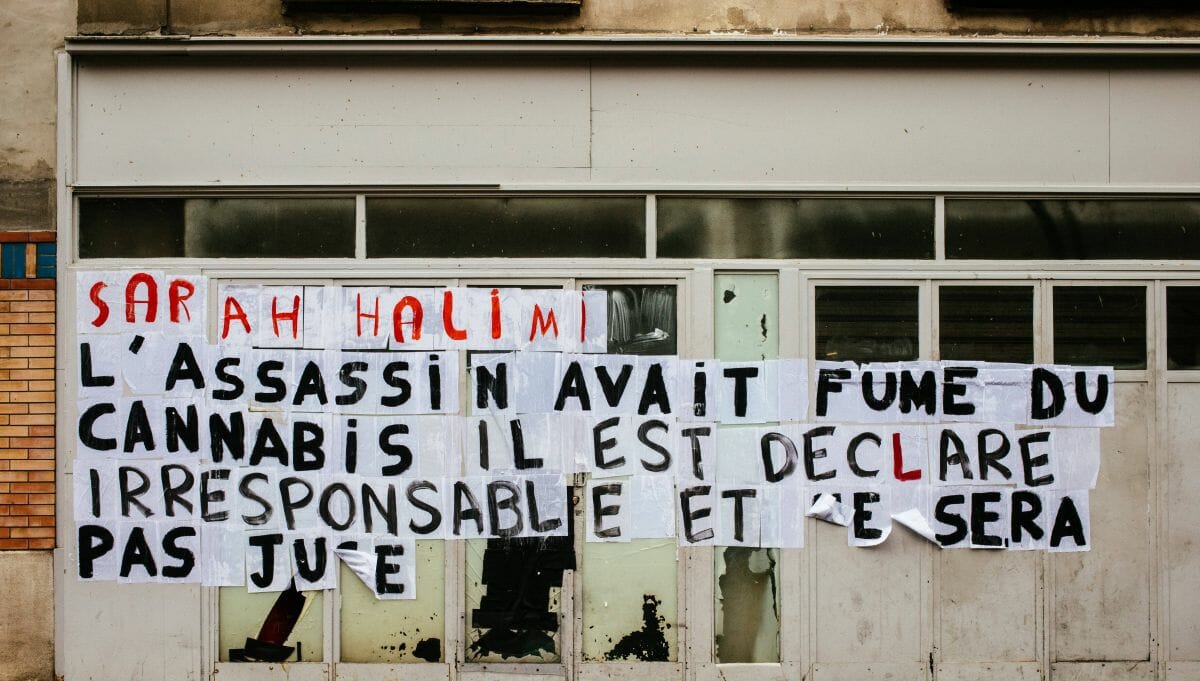 SARAH HALIMI
L'ASSASSIN AVAIT FUME DU
CANNABIS IL EST DECLARE
IRRESPONSABLE ET NE SERA
PAS JUGE